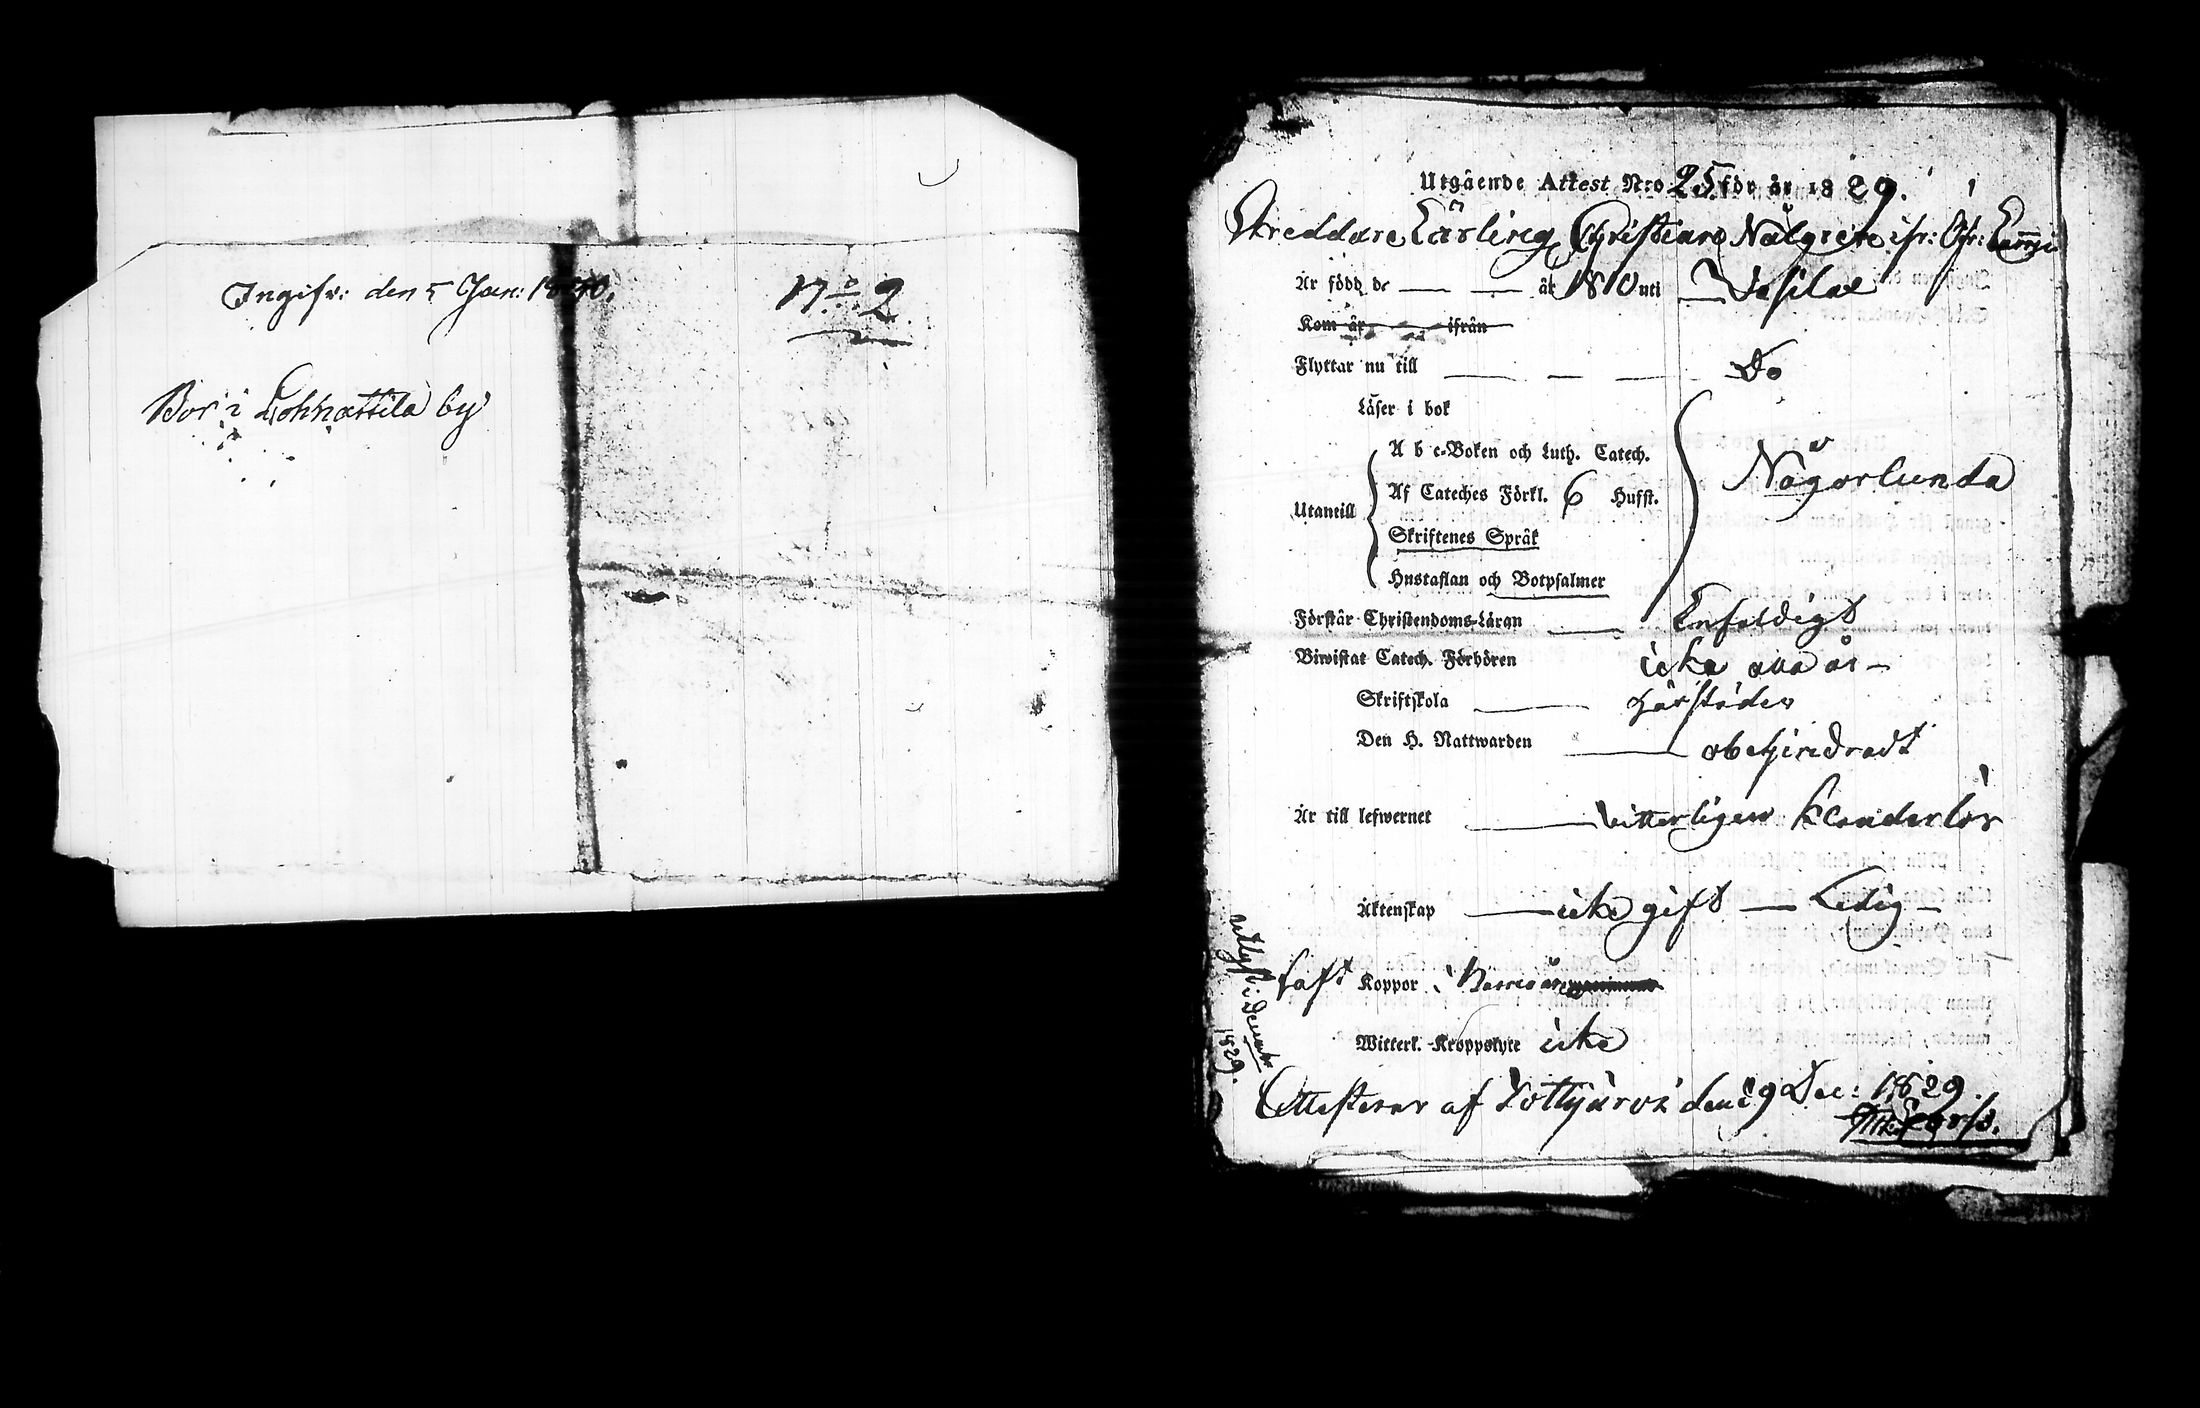 Ingifv: den 5 Jan: 1830.
N:o 2
Bor i Lohnattila by
Utgående Attest N:o 25 för år 1829.
Skreddare Lärling Christian Nälgren ifr: Öfr: Lammi
Är född de — — år 1810 uti — Vesilax
Kom år ifrån
Flyttar nu till — — — Do
Läser i bok
A b c-Boken och Luth. Catech.
Någorlunda
Af Cateches Förkl. 6 Hufst.
Utantill
Skriftenes Språk
Hustaflan och Botpsalmer
Förstår Christendoms-Läran — Enfaldigt
Biwistat Catech. Förhören icke alla år —
Skriftskola — härstädes
Den H. Nattwarden — obehindradt
Är till lefwernet — vitterligen klanderlös
Äktenskap — icke gift — Ledig —
haft Koppor i Barnaåren
Witterl. Kroppslyte icke
utlyst i Decemb: 1829.
Attesterar af Tottijärvi den 29 Dec: 1829.